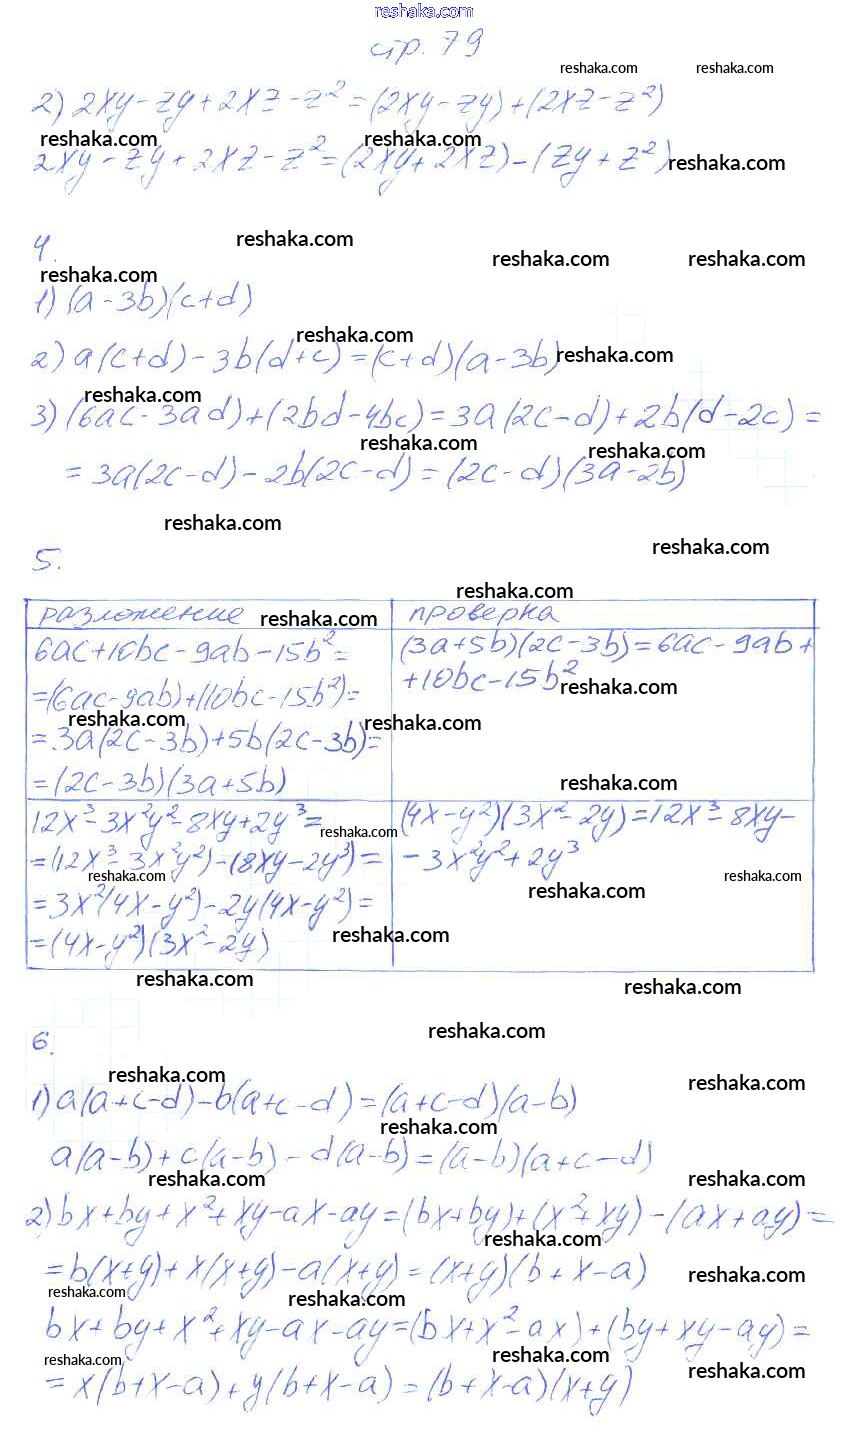 reshaka.com
стр. 79
reshaka.com reshaka.com
2) 2xy-zy+2xz-z²=(2xy-zy)+(2xz-z²)
reshaka.com reshaka.com
2xy-zy+2xz-z²=(2xy+2xz)-(zy+z²)
reshaka.com
4.
reshaka.com
reshaka.com reshaka.com
reshaka.com
1) (a-3b)(c+d)
reshaka.com
2) a(c+d)-3b(d+c)=(c+d)(a-3b)
reshaka.com
reshaka.com
3) (6ac-3ad)+(2bd-4bc)=3a(2c-d)+2b(d-2c)=
reshaka.com
reshaka.com
=3a(2c-d)-2b(2c-d)=(2c-d)(3a-2b)
reshaka.com
reshaka.com
5.
reshaka.com
разложение
reshaka.com
проверка
6ac+10bc-9ab-15b²=
=(6ac-9ab)+(10bc-15b²)=
reshaka.com
=3a(2c-3b)+5b(2c-3b)=
=(2c-3b)(3a+5b)
(3a+5b)(2c-3b)=6ac-9ab+
+10bc-15b²
reshaka.com
reshaka.com
reshaka.com
12x³-3x²y²-8xy+2y³=
reshaka.com
=(12x³-3x²y²)-(8xy-2y³)=
reshaka.com
=3x²(4x-y²)-2y(4x-y²)=
=(4x-y²)(3x²-2y)
reshaka.com
(4x-y²)(3x²-2y)=12x³-8xy-
-3x²y²+2y³
reshaka.com
reshaka.com
reshaka.com
reshaka.com
reshaka.com
6.
reshaka.com
reshaka.com
1) a(a+c-d)-b(a+c-d)=(a+c-d)(a-b)
reshaka.com
a(a-b)+c(a-b)-d(a-b)=(a-b)(a+c-d)
reshaka.com reshaka.com
2) bx+by+x²+xy-ax-ay=(bx+by)+(x²+xy)-(ax+ay)=
reshaka.com
=b(x+y)+x(x+y)-a(x+y)=(x+y)(b+x-a)
reshaka.com
reshaka.com reshaka.com
bx+by+x²+xy-ax-ay=(bx+x²-ax)+(by+xy-ay)=
reshaka.com reshaka.com
reshaka.com
=x(b+x-a)+y(b+x-a)=(b+x-a)(x+y)